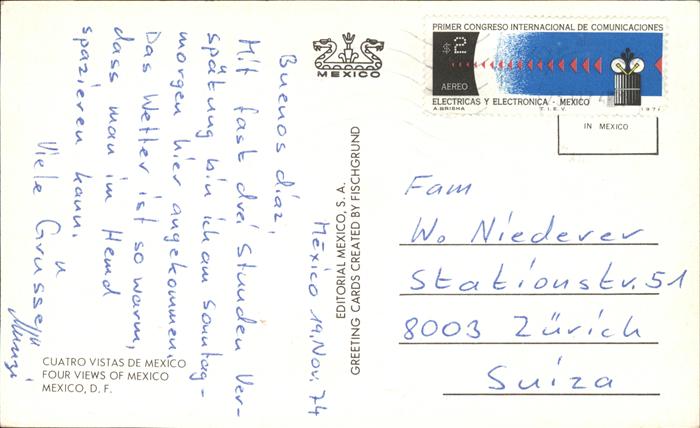 México 19. Nov. 74
Buenos díaz,
Mit fast drei Stunden Ver-
spätung bin ich am Sonntag-
morgen hier angekommen.
Das Wetter ist so warm,
dass man im Hemd
spazieren kann.
Viele Grüsse
MEXICO
EDITORIAL MEXICO, S. A.
GREETING CARDS CREATED BY FISCHGRUND
CUATRO VISTAS DE MEXICO
FOUR VIEWS OF MEXICO
MEXICO, D. F.
PRIMER CONGRESO INTERNACIONAL DE COMUNICACIONES
$2
AEREO
ELECTRICAS Y ELECTRONICA - MEXICO
A. BRISHA T.I.E.V. 1971
IN MEXICO
Fam
W. Niederer
Stationstr. 51
8003 Zürich
Suiza